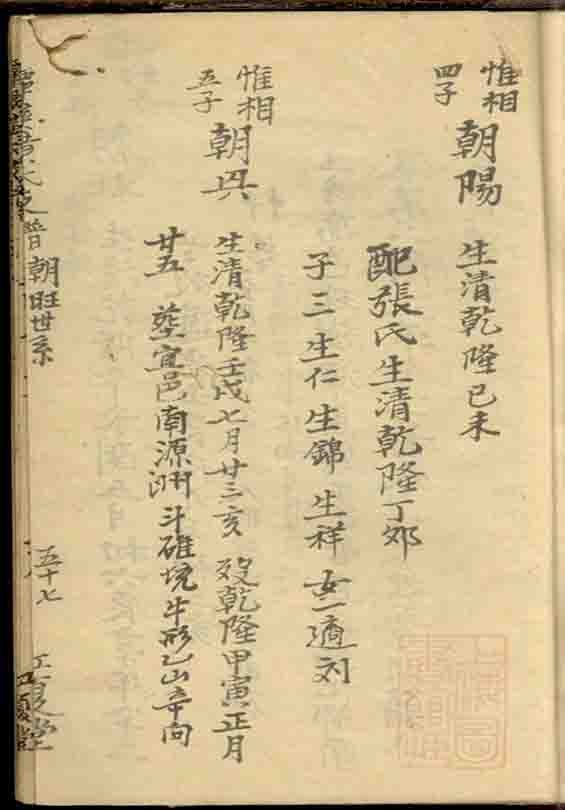 惟相
四子
朝陽 生清乾隆己未
配張氏生清乾隆丁夘
子三生仁生錦生祥 女一適刘
惟相
五子
朝兴 生清乾隆壬戌七月廿三亥 歿乾隆甲寅正月
廿五 塟宜邑南源洲斗碓坑牛形乙山辛向
朝旺世系
五十七
江夏堂